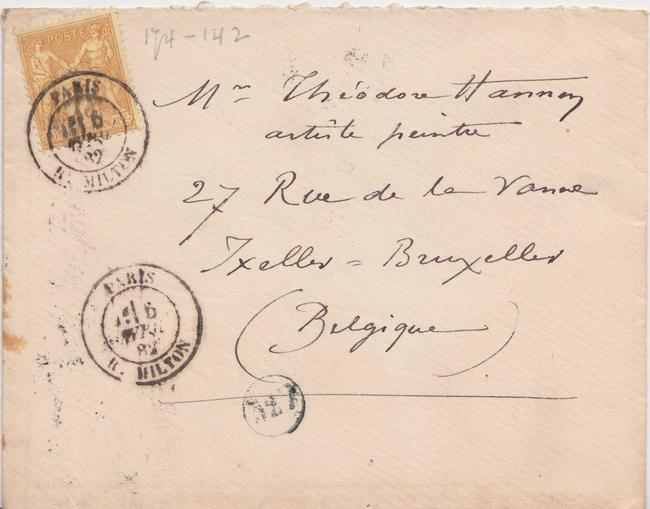 174-142
POSTE
PARIS
6
82
R. MILTON
Mr Théodore Hannon
artiste peintre
27 Rue de la Vanne
Ixelles = Bruxelles
(Belgique)
PARIS
6
AVRIL
82
R. MILTON